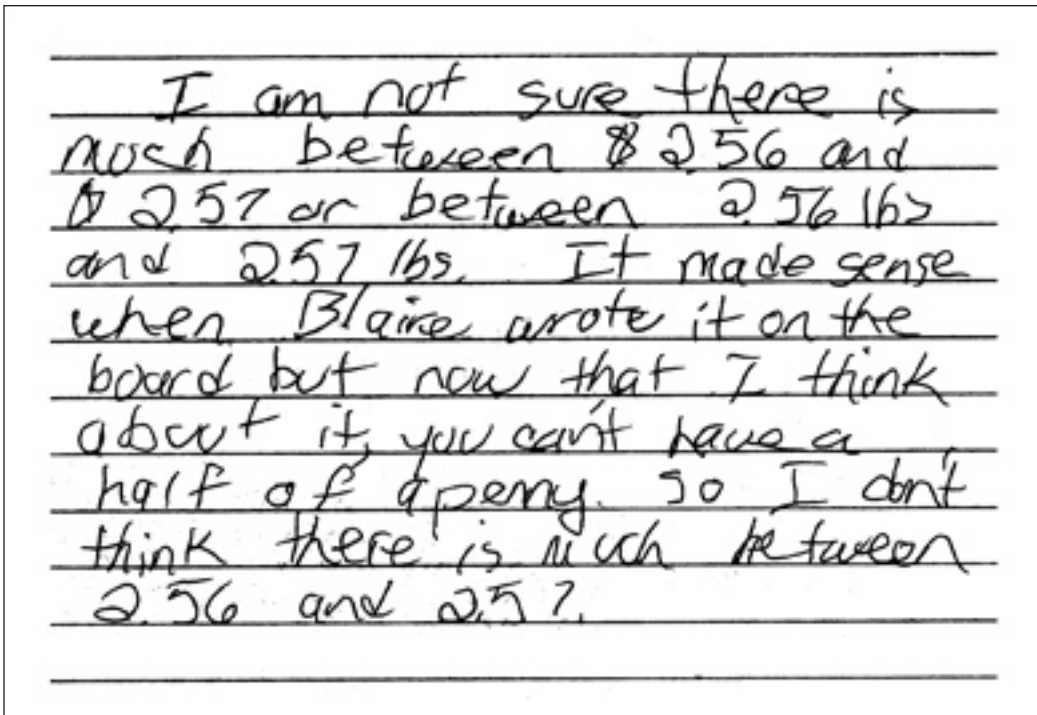 I am not sure there is
much between $2.56 and
$2.57 or between 2.56 lbs
and 2.57 lbs. It made sense
when Blaire wrote it on the
board but now that I think
about it, you can't have a
half of a penny. so I don't
think there is much between
2.56 and 2.57.